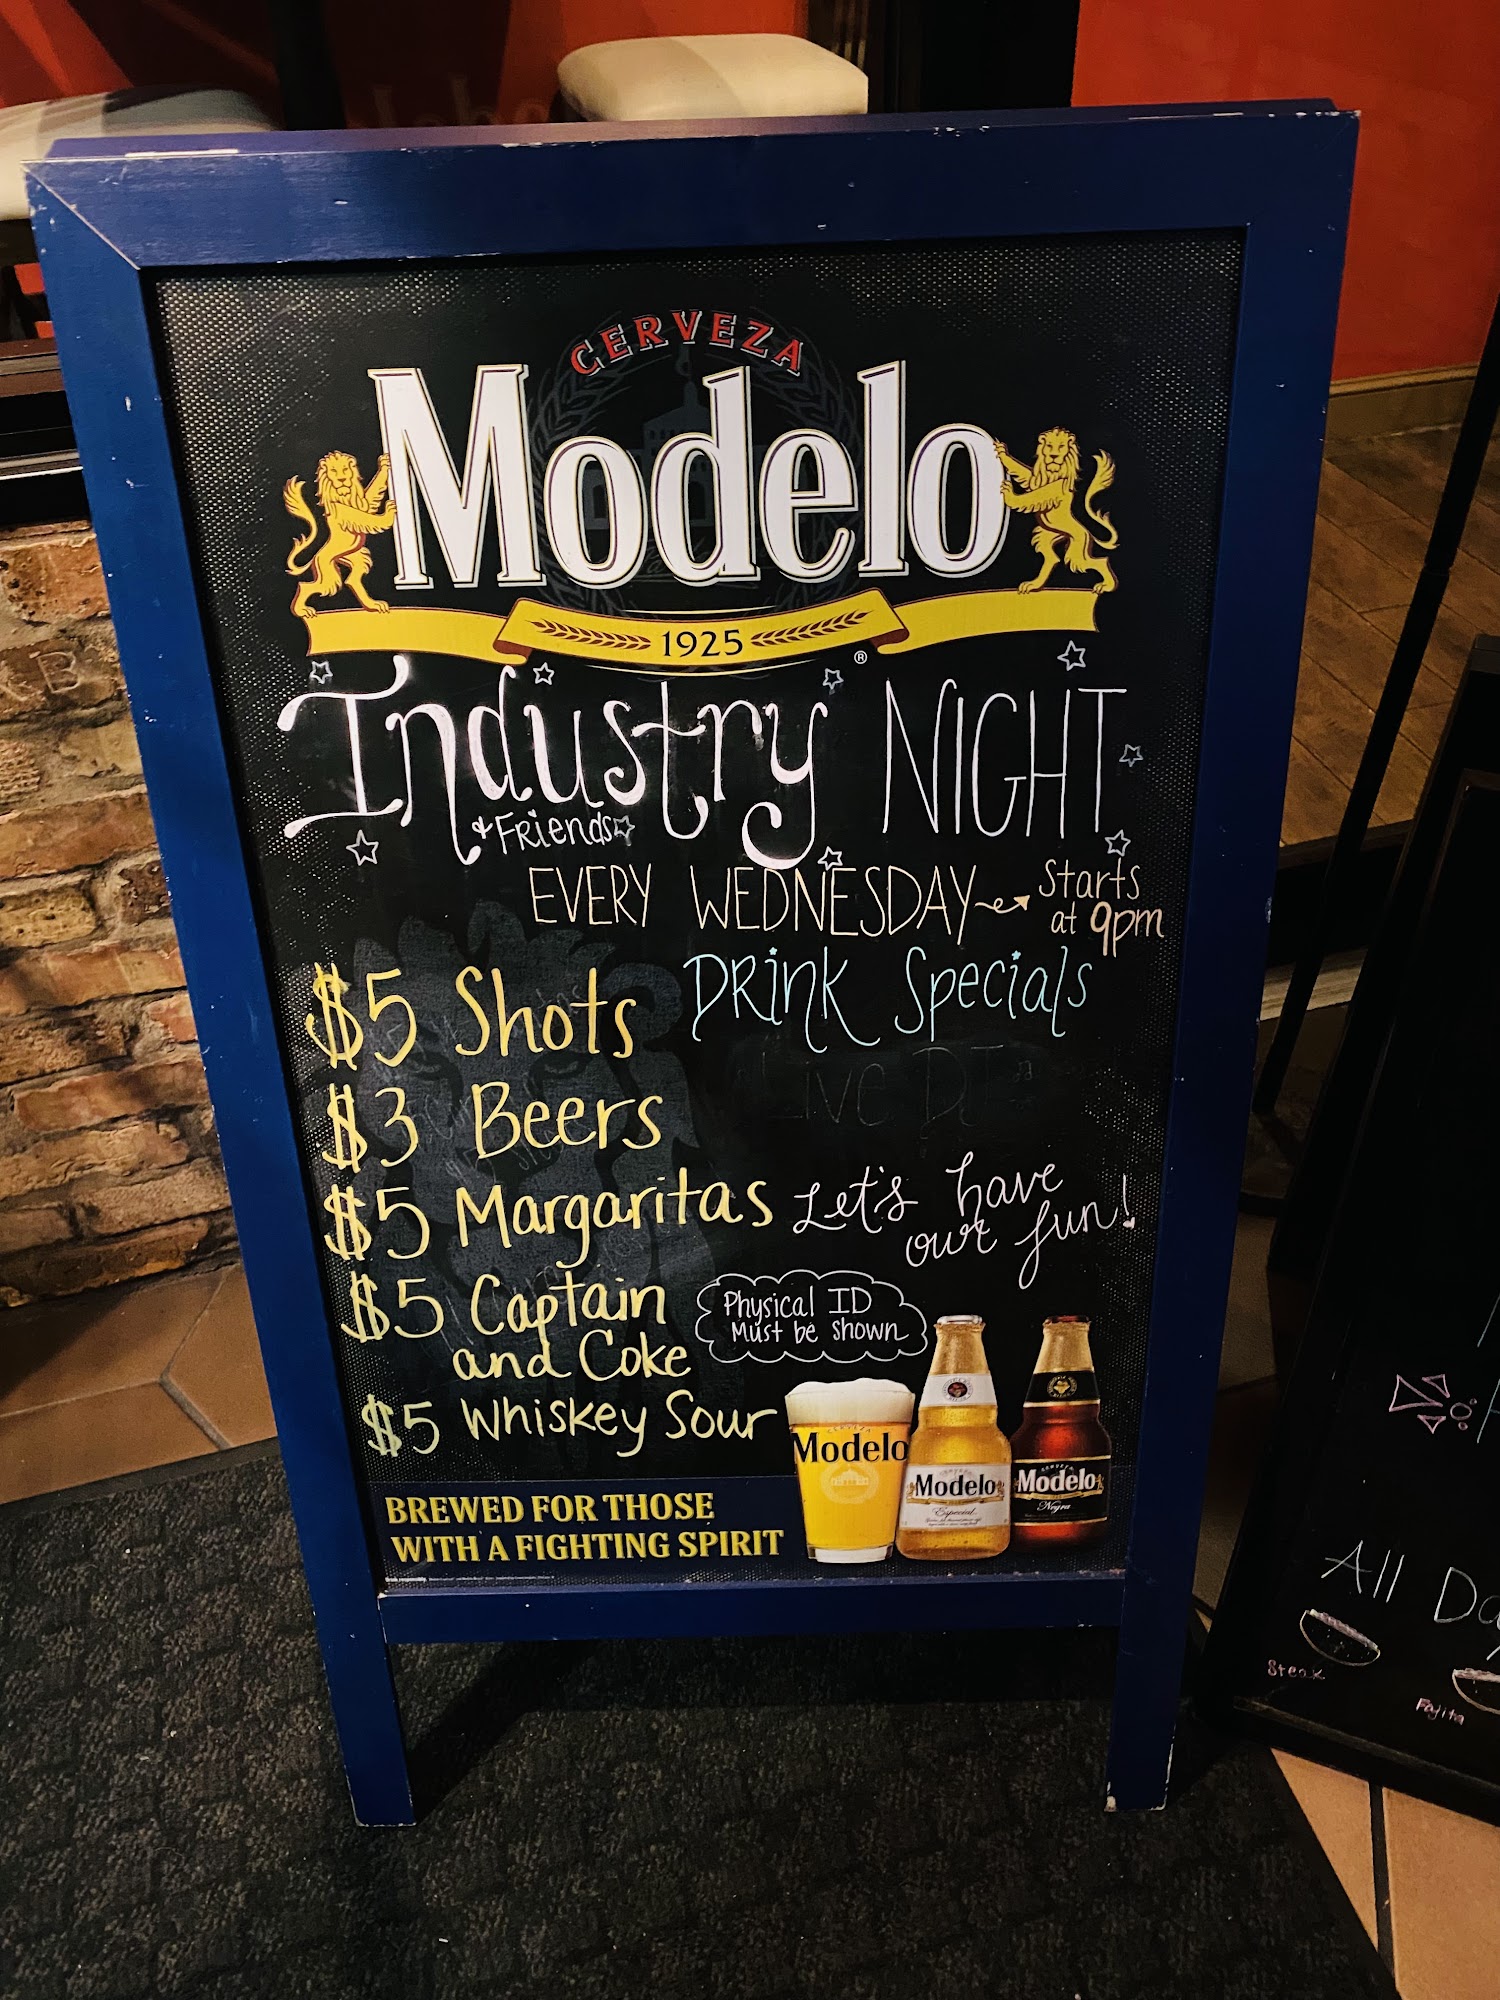 CERVEZA
Modelo
1925
®
Industry NIGHT
+ Friends
EVERY WEDNESDAY → Starts
at 9pm
DRink Specials
$5 Shots
Live DJ
$3 Beers
$5 Margaritas
Let's have
our fun!
$5 Captain
and Coke
Physical ID
Must be shown
$5 Whiskey Sour
Modelo
CERVEZA
Modelo
Especial
CERVEZA
Modelo
Negra
BREWED FOR THOSE
WITH A FIGHTING SPIRIT
All Da
Steak
Fajita